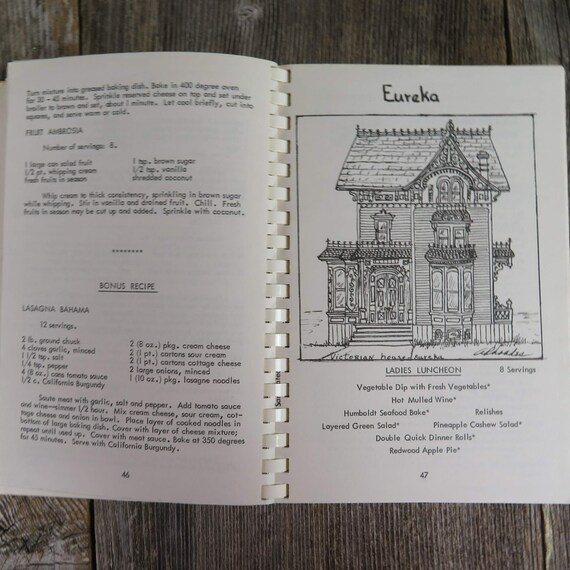 Turn mixture into greased baking dish. Bake in 400 degree oven
for 30 - 45 minutes. Sprinkle reserved cheese on top and set under
broiler to brown and set, about 1 minute. Let cool briefly, cut into
squares, and serve warm or cold.
FRUIT AMBROSIA
Number of servings: 8.
1 large can salad fruit
1/2 pt. whipping cream
fresh fruits in season
1 tsp. brown sugar
1/2 tsp. vanilla
shredded coconut
Whip cream to thick consistency, sprinkling in brown sugar
while whipping. Stir in vanilla and drained fruit. Chill. Fresh
fruits in season may be cut up and added. Sprinkle with coconut.
********
BONUS RECIPE
LASAGNA BAHAMA
12 servings.
2 lb. ground chuck
4 cloves garlic, minced
1 1/2 tsp. salt
1/4 tsp. pepper
4 (8 oz.) cans tomato sauce
1/2 c. California Burgundy
2 (8 oz.) pkg. cream cheese
2 (1 pt.) cartons sour cream
2 (1 pt.) cartons cottage cheese
2 large onions, minced
1 (10 oz.) pkg. lasagne noodles
Saute meat with garlic, salt and pepper. Add tomato sauce
and wine--simmer 1/2 hour. Mix cream cheese, sour cream, cot-
tage cheese and onion in bowl. Place layer of cooked noodles in
bottom of large baking dish. Cover with layer of cheese mixture;
repeat until used up. Cover with meat sauce. Bake at 350 degrees
for 45 minutes. Serve with California Burgundy.
46
Eureka
Victorian house, eureka
LADIES LUNCHEON 8 Servings
Vegetable Dip with Fresh Vegetables*
Hot Mulled Wine*
Humboldt Seafood Bake* Relishes
Layered Green Salad* Pineapple Cashew Salad*
Double Quick Dinner Rolls*
Redwood Apple Pie*
47